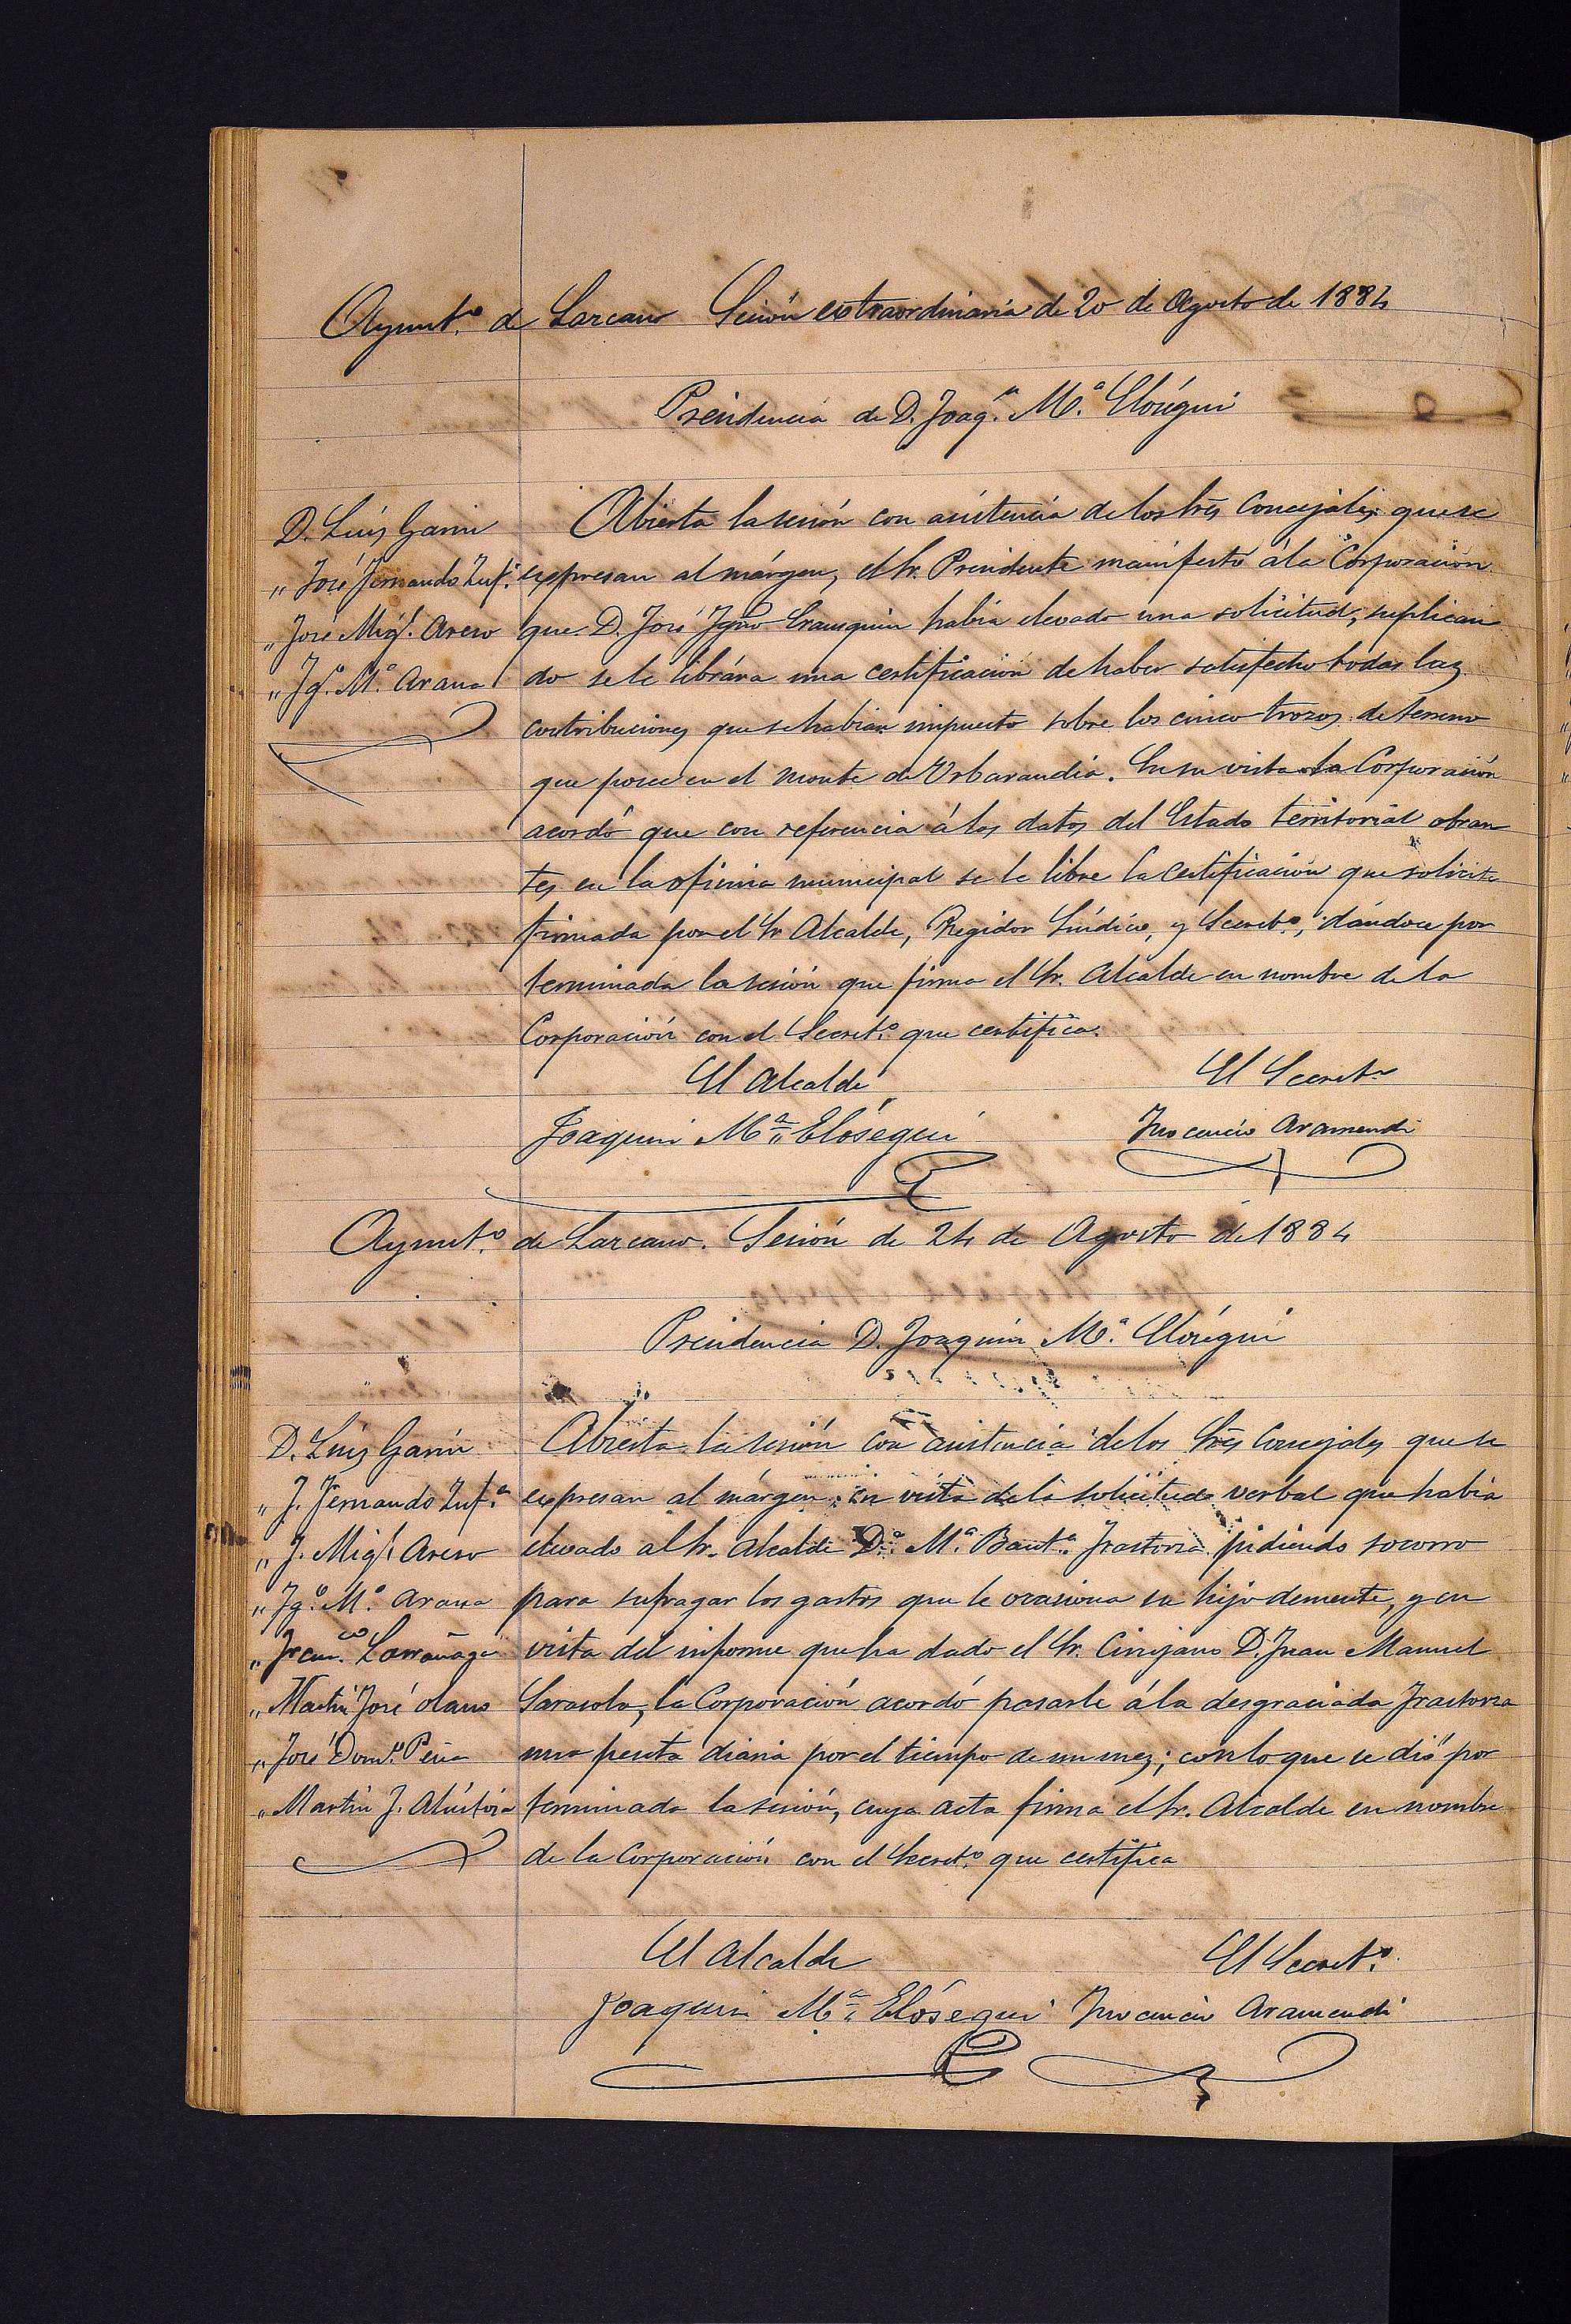 Ayunt.º de Lazcano Sesión extraordinaria de 20 de Agosto de 1884
Presidencia de D. Joaq.n M.ª Elósegui
D. Luis Garin
" José Fernando Zuf.ª
" José Mig.l Areso
" Ig.º M.ª Arana
Abierta la sesión con asistencia de los Sres Concejales que se
expresan al márgen, el Sr. Presidente manifestó á la Corporación
que D. José Ygno Erausquin habia elevado una solicitud, suplican
do se le librára una certificación de haber satisfecho todas las
contribuciones que se habian impuesto sobre los cinco trozos de terreno
que posee en el monte de Urbarandia. En su vista la Corporación
acordó que con referencia á los datos del Estado territorial obran
tes en la oficina municipal se le libre la certificación que solicita
firmada por el Sr Alcalde, Regidor Síndico, y Secret.º, dándose por
terminada la sesión que firma el Sr. Alcalde en nombre de la
Corporación con el Secret.º que certifica.
El Alcalde El Secret.º
Joaquin M.ª Elósegui Inocencio Aramendi
Ayunt.º de Lazcano. Sesión de 24 de Agosto de 1884
Presidencia D. Joaquin M.ª Elósegui
D. Luis Garin
" J. Fernando Zuf.ª
" J. Mig.l Areso
" Ig.º M.ª Arana
" Fran.co Larrañaga
" Martin José Olano
" José Dom.º Peña
" Martin J. Alústiza
Abierta la sesión con asistencia de los Sres Concejales que se
expresan al márgen, en vista de la solicitud verbal que habia
elevado al Sr. Alcalde D.ª M.ª Baut.ª Irastorza pidiendo socorro
para sufragar los gastos que le ocasiona su hijo demente, y en
vista del informe que ha dado el Sr. Cirujano D. Juan Manuel
Sarasola, la Corporación acordó pasarle á la desgraciada Irastorza
una peseta diaria por el tiempo de un mes; con lo que se dió por
terminada la sesión, cuya acta firma el Sr. Alcalde en nombre
de la Corporación con el Secret.º que certifica
El Alcalde El Secret.º
Joaquin M.ª Elósegui Inocencio Aramendi